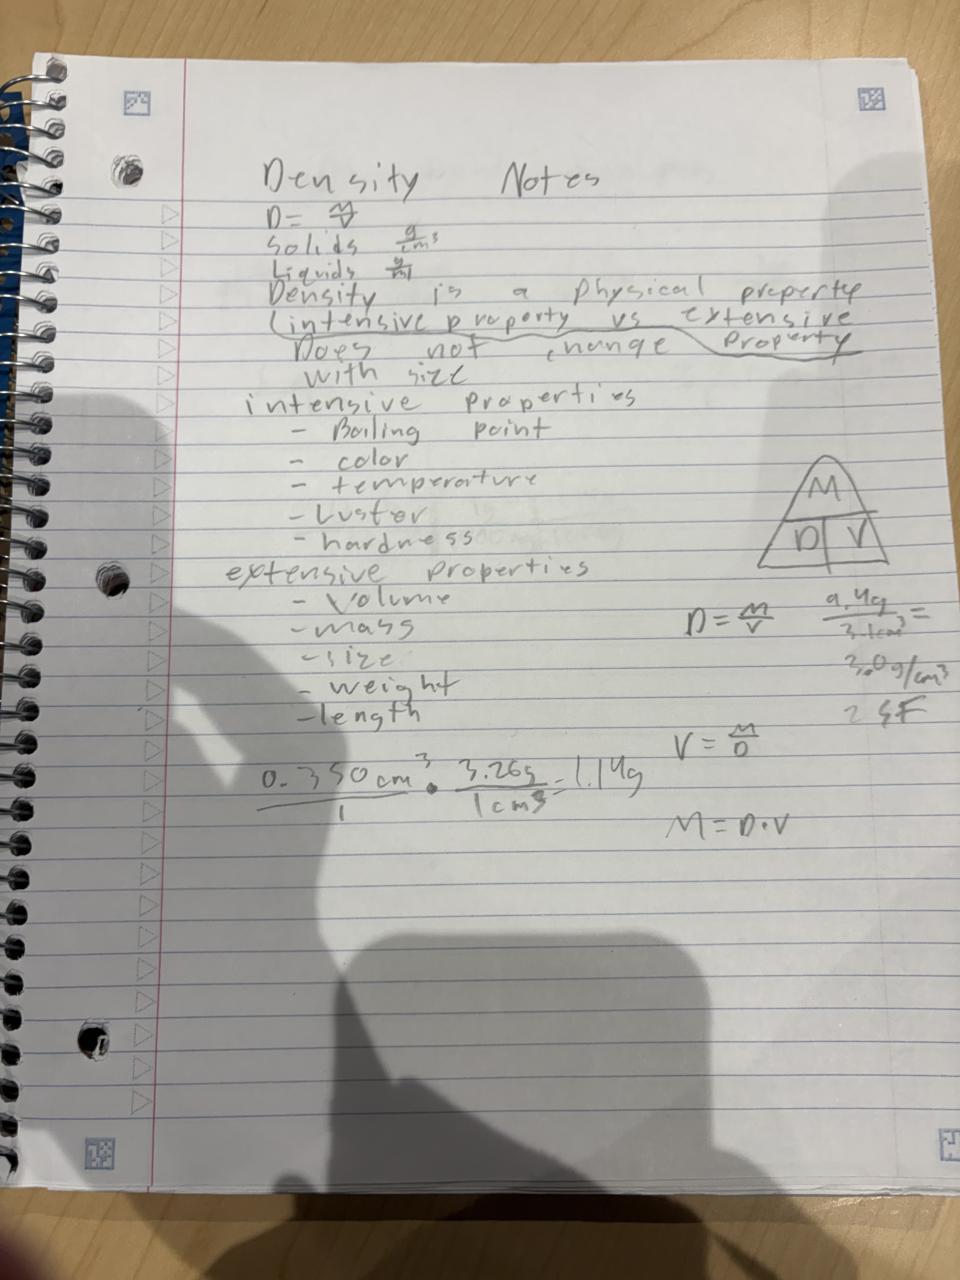 Density Notes
D = M/V
Solids g/cm³
Liquids g/ml
Density is a physical property
(intensive property vs extensive
Property
Does not change
with size
intensive properties
- Boiling point
- color
- temperature
- Luster
- hardness
extensive properties
- Volume
- mass
- size
- weight
- length
0.350cm³/1 • 3.26g/1cm³ = 1.14g
M
D V
D = M/V 9.4g/3.1cm³ =
3.0g/cm³
2 SF
V = M/D
M = D·V